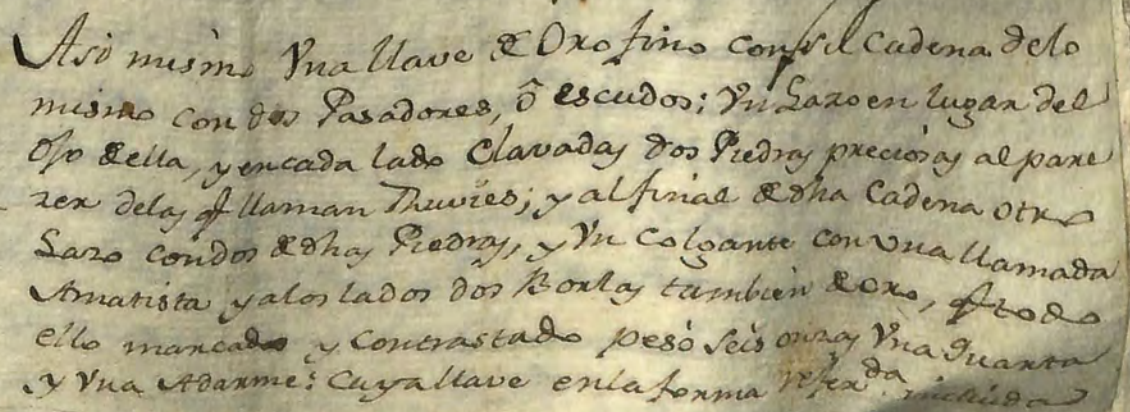 Asi mismo Vna llave de Oro fino con su Cadena delo
mismo con dos Pasadores, ô escudos; Vn Lazo en lugar del
Ojo de ella, y en cada lado Clavadas dos Piedras preciosas al pare
zer delas q llaman Rhuvies; y al final de dha Cadena otro
Lazo con dos de dhas Piedras, y Vn colgante con vna llamada
Amatista y alos lados dos Borlas tambien de oro, q todo
ello marcado y contrastado pesó seis onzas Vna quarta
y Vna Adarme: Cuya llave en la forma referda incluida